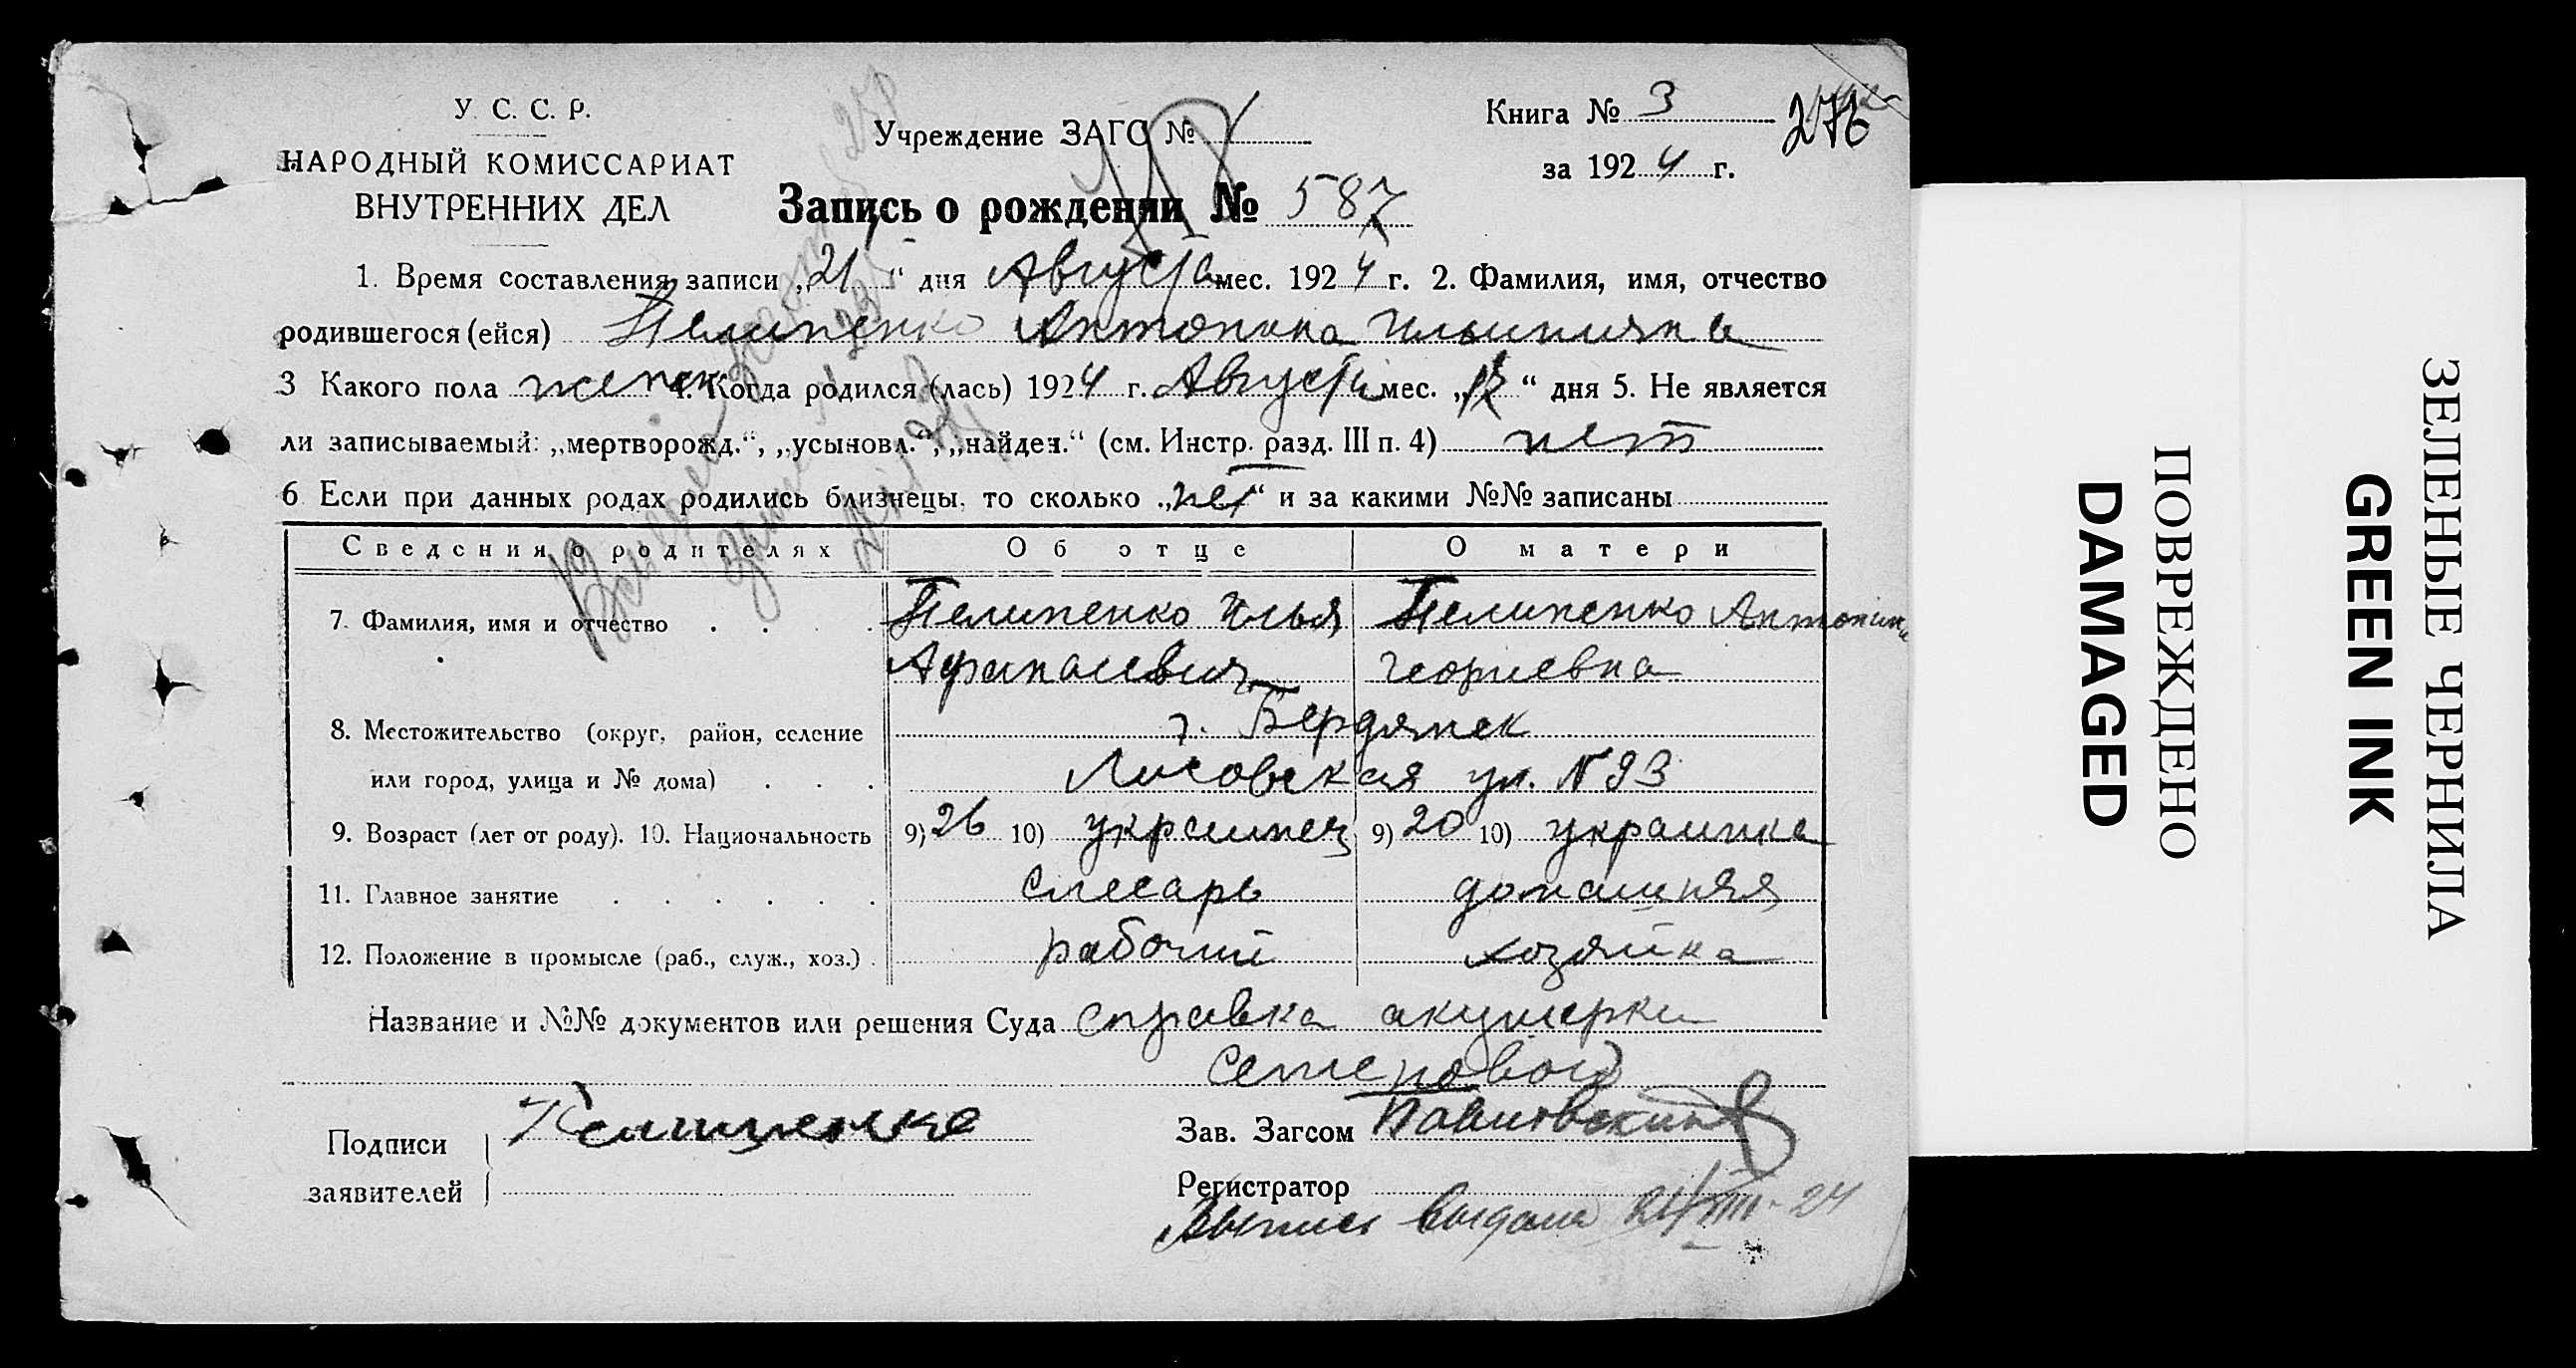 У. С. С. Р.
НАРОДНЫЙ КОМИССАРИАТ
ВНУТРЕННИХ ДЕЛ
Учреждение ЗАГС №
Книга № 3
276
за 1924 г.
Запись о рождении № 587
1. Время составления записи „21“ дня Августа мес. 1924 г. 2. Фамилия, имя, отчество
родившегося (ейся) Пелипенко Антонина Ильинична
3 Какого пола женск 4. Когда родился (лась) 1924 г. Августа мес. „17“ дня 5. Не является
ли записываемый: „мертворожд.“, „усыновл.“, „найден.“ (см. Инстр. разд. III п. 4) нет
6 Если при данных родах родились близнецы, то сколько „нет“ и за какими №№ записаны
Сведения о родителях Об отце О матери
7. Фамилия, имя и отчество Пелипенко Илья Пелипенко Антонина
Афанасиевич Георгиевна
8. Местожительство (округ, район, селение г. Бердянск
или город, улица и № дома) Лисовская ул. № 93
9. Возраст (лет от роду). 10. Национальность 9) 26 10) украинец 9) 20 10) украинка
11. Главное занятие слесарь домашняя
12. Положение в промысле (раб., служ., хоз.) рабочий хозяйка
Название и №№ документов или решения Суда справка акушерки
Подписи Пелипенко
заявителей
Зав. Загсом
Регистратор
выдана 21/VIII-24
ЗЕЛЕНЫЕ ЧЕРНИЛА
GREEN INK
ПОВРЕЖДЕНО
DAMAGED